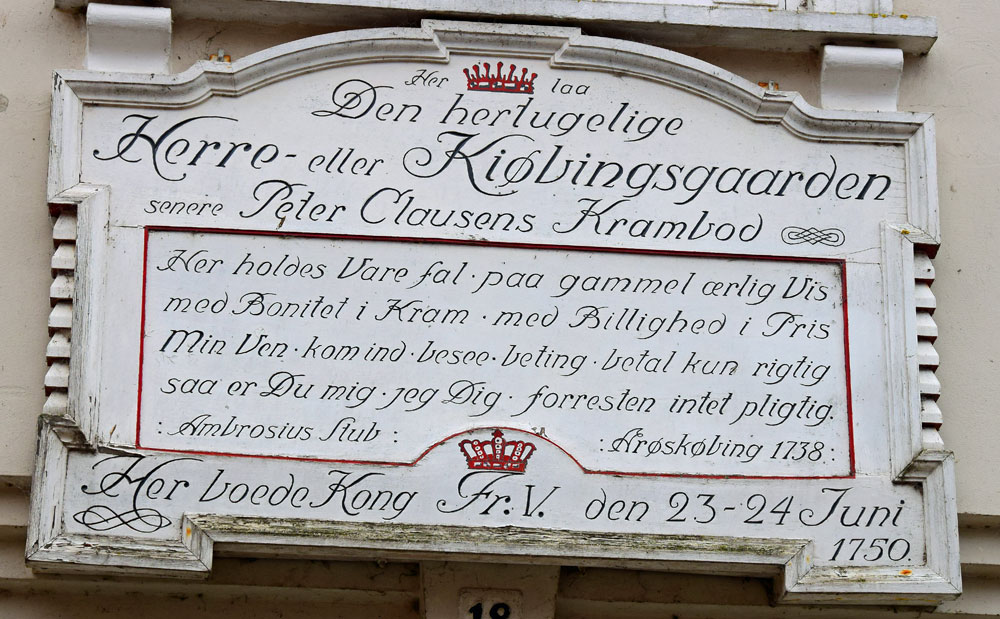 Her laa
Den hertugelige
Herre- eller Kiøbingsgaarden
senere Peter Clausens Krambod
Her holdes Vare fal · paa gammel ærlig Vis
med Bonitet i Kram · med Billighed i Pris
Min Ven · kom ind · besee · beting · betal kun rigtig
saa er Du mig · jeg Dig · forresten intet pligtig.
: Ambrosius Stub : : Ærøskøbing 1738. :
Her boede Kong Fr. V. den 23-24 Juni
1750.
18